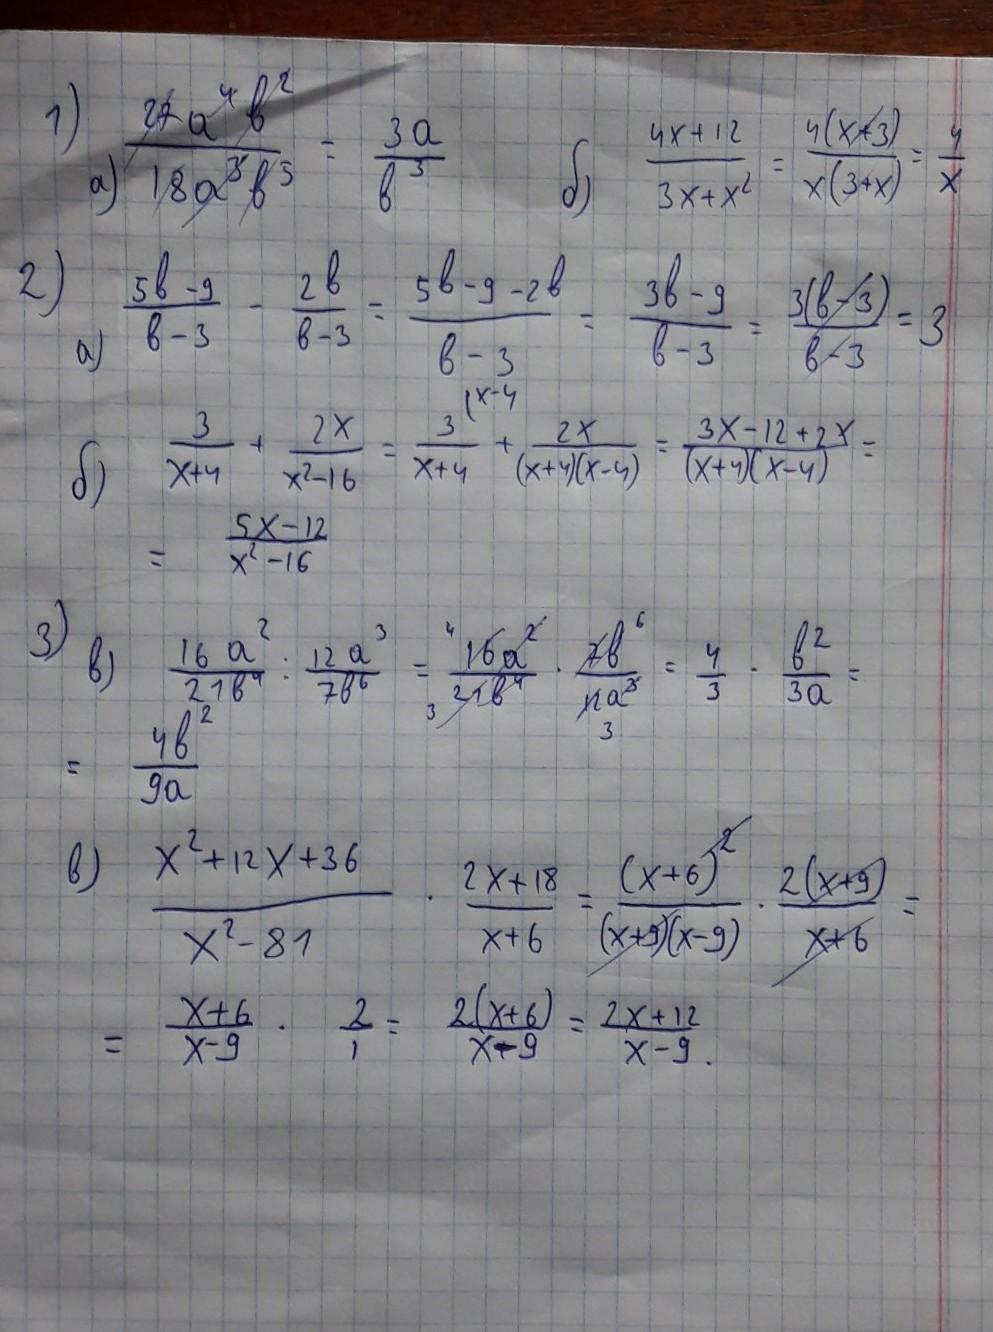 1) а) 27a⁴b² / 18a³b⁵ = 3a / b³ б) 4x+12 / 3x+x² = 4(x+3) / x(3+x) = 4 / x
2) а) 5b-9 / b-3 - 2b / b-3 = 5b-9-2b / b-3 = 3b-9 / b-3 = 3(b-3) / b-3 = 3
б) 3 / x+4 + 2x / x²-16 = 3 (x-4 / x+4 + 2x / (x+4)(x-4) = 3x-12+2x / (x+4)(x-4) =
= 5x-12 / x²-16
3) в) 16a² / 21b⁴ : 12a³ / 7b⁶ = 4 16a² / 3 21b⁴ · 7b⁶ / 12a³ 3 = 4 / 3 · b² / 3a =
= 4b² / 9a
в) x²+12x+36 / x²-81 · 2x+18 / x+6 = (x+6)² / (x+9)(x-9) · 2(x+9) / x+6 =
= x+6 / x-9 · 2 / 1 = 2(x+6) / x-9 = 2x+12 / x-9.